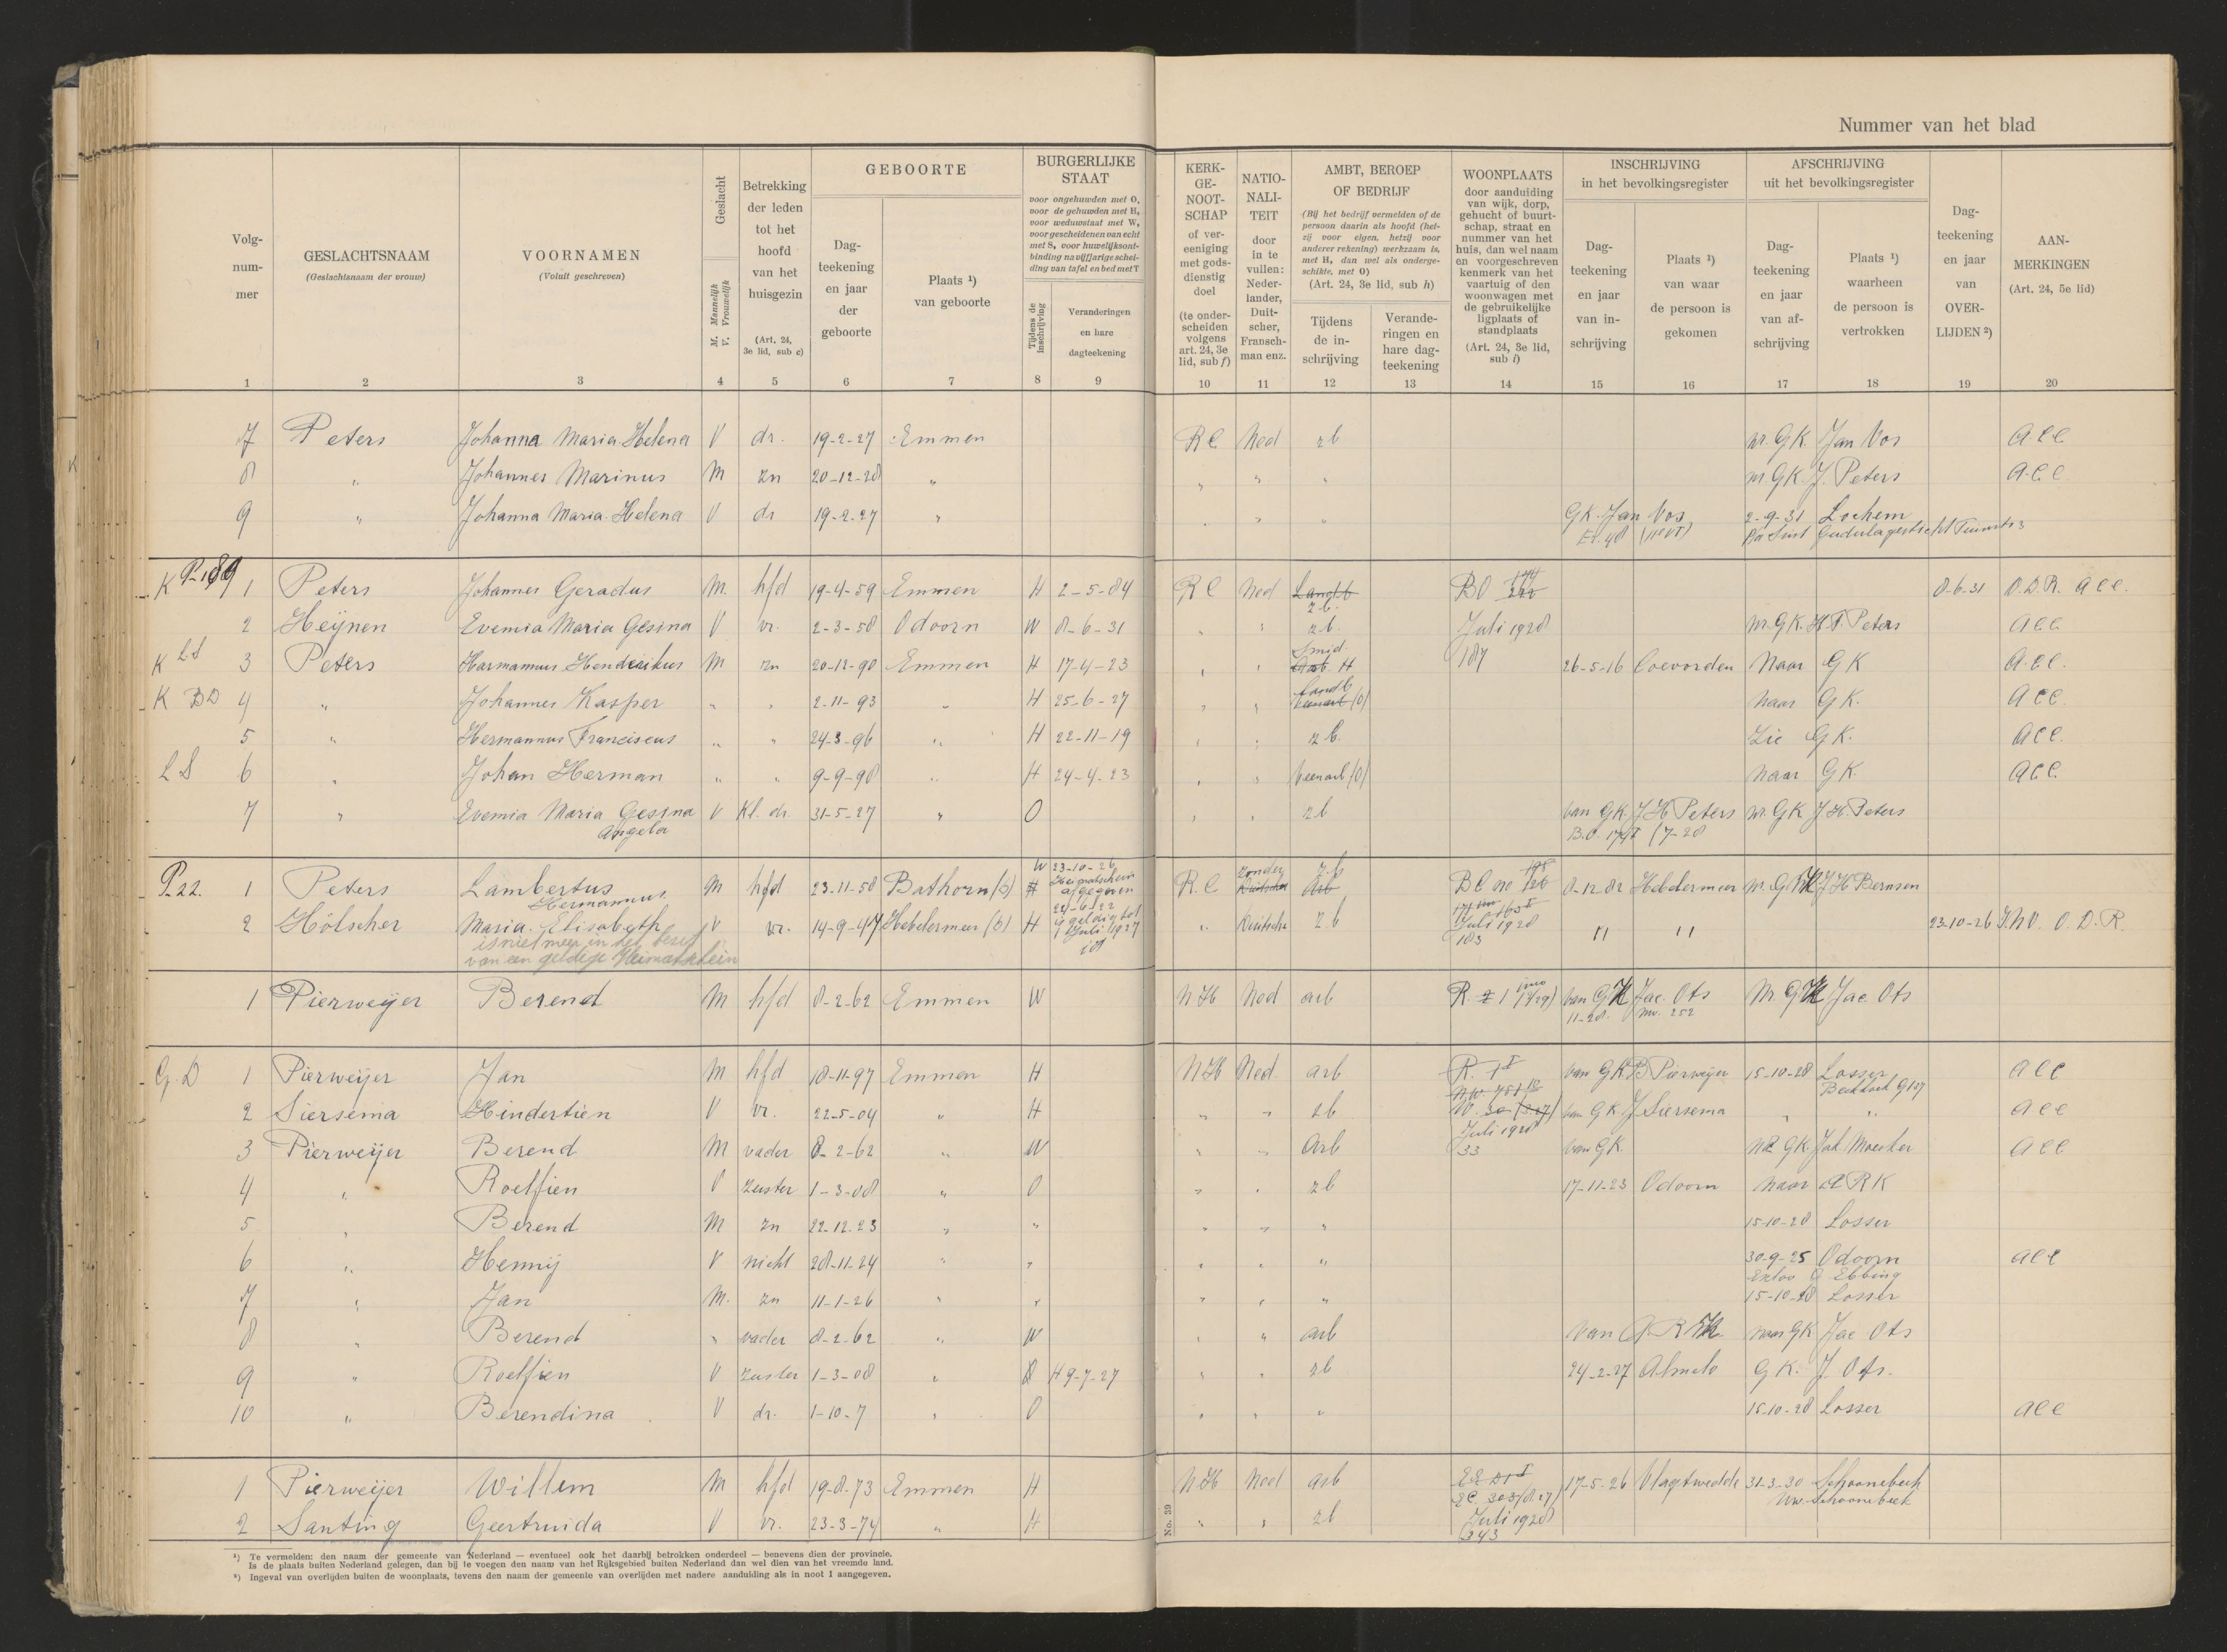 Nummer van het blad
Volg-
num-
mer
GESLACHTSNAAM
(Geslachtsnaam der vrouw)
VOORNAMEN
(Voluit geschreven)
Geslacht
M. Mannelijk
V. Vrouwelijk
Betrekking
der leden
tot het
hoofd
van het
huisgezin
(Art. 24,
3e lid, sub c)
GEBOORTE
Dag-
teekening
en jaar
der
geboorte
Plaats ¹)
van geboorte
BURGERLIJKE
STAAT
voor ongehuwden met O,
voor de gehuwden met H,
voor weduwstaat met W,
voor gescheidenen van echt
met S, voor huwelijksont-
binding na vijfjarige schei-
ding van tafel en bed met T
Tijdens de
inschrijving
Veranderingen
en hare
dagteekening
KERK-
GE-
NOOT-
SCHAP
of ver-
eeniging
met gods-
dienstig
doel
(te onder-
scheiden
volgens
art. 24, 3e
lid, sub f)
NATIO-
NALI-
TEIT
door
in te
vullen:
Neder-
lander,
Duit-
scher,
Fransch-
man enz.
AMBT, BEROEP
OF BEDRIJF
(Bij het bedrijf vermelden of de
persoon daarin als hoofd (het-
zij voor eigen, hetzij voor
anderer rekening) werkzaam is,
met H, dan wel als onderge-
schikte, met O)
(Art. 24, 3e lid, sub h)
Tijdens
de in-
schrijving
Verande-
ringen en
hare dag-
teekening
WOONPLAATS
door aanduiding
van wijk, dorp,
gehucht of buurt-
schap, straat en
nummer van het
huis, dan wel naam
en voorgeschreven
kenmerk van het
vaartuig of den
woonwagen met
de gebruikelijke
ligplaats of
standplaats
(Art. 24, 3e lid,
sub i)
INSCHRIJVING
in het bevolkingsregister
Dag-
teekening
en jaar
van in-
schrijving
Plaats ¹)
van waar
de persoon is
gekomen
AFSCHRIJVING
uit het bevolkingsregister
Dag-
teekening
en jaar
van af-
schrijving
Plaats ¹)
waarheen
de persoon is
vertrokken
Dag-
teekening
en jaar
van
OVER-
LIJDEN ²)
AAN-
MERKINGEN
(Art. 24, 5e lid)
1 2 3 4 5 6 7 8 9 10 11 12 13 14 15 16 17 18 19 20
7 Peters Johanna Maria Helena V dr. 19-2-27 Emmen RC Ned zb nr. GK Jan Vos ACC
8 " Johannes Marinus M zn 20-12-28 " " " " nr. GK J. Peters ACC
9 " Johanna Maria Helena V dr 19-2-27 " " " " GK. Jan Vos 2-9-31 Lochem
K P-189 1 Peters Johannes Geradus M. hfd 19-4-59 Emmen H 2-5-84 RC Ned Landb zb. BO 8-6-31 O.D.R. ACC.
2 Heÿnen Evemia Maria Gesina V vr. 2-3-58 Odoorn W 8-6-31 " " zb. Juli 1928 nr. GK. H.F. Peters ACC
K LS 3 Peters Harmannus Hendrikus M zn 20-12-90 Emmen H 17-4-23 " " Smid H 187 26-5-16 Coevorden Naar GK ACC.
K BD 4 " Johannes Kasper " " 2-11-93 " H 25-6-27 " " Landb (O) Naar GK. ACC.
5 " Hermannus Franciscus " " 24-3-96 " H 22-11-19 " " zb. Zie GK. ACC.
LS 6 " Johan Herman " " 9-9-98 " H 24-4-23 " " Veenarb (O) Naar GK. ACC.
7 " Evemia Maria Gesina V Kl. dr. 31-5-27 " O " " zb van GK. J H Peters nr. GK J.H. Peters
Angela
P.22. 1 Peters Lambertus M hfd 23-11-58 Bathorn (D) W 23-10-26 R.C zonder zb 8-12-82 Hebelermeer nr. GK J H Bernsen
Hermannus
2 Hölscher Maria Elisabeth V vr. 14-9-47 Hebelermeer (D) H " Duitsche zb Juli 1928 " " 23-10-26 O.D.R.
183
is niet meer in het bezit
van een geldige Heimatschein
1 Pierweijer Berend M hfd 8-2-62 Emmen W NH Ned arb van GK Jac. Ots Nr. GK Jac Ots
G.D 1 Pierweijer Jan M hfd 18-11-97 Emmen H NH Ned. arb van GK B Pierweijer 15-10-28 Losser ACC
2 Siersema Hindertien V vr. 22-5-04 " H " " zb van GK. J Siersema " " ACC
Juli 1928
33
3 Pierweijer Berend M vader 8-2-62 " W " " Arb van GK. GK. Joh. Moesker ACC
4 " Roelfien V zuster 1-3-08 " O " " zb 17-11-23 Odoorn Naar ARK
5 " Berend M zn 22-12-23 " " " " " 15-10-28 Losser
6 " Hennij V nicht 28-11-24 " " " " " 30-9-25 Odoorn ACC
Exloo Ebbing
7 " Jan M. zn 11-1-26 " " " " " 15-10-28 Losser
8 " Berend " vader 8-2-62 " W " " arb van A.R.K naar GK Jac Ots
9 " Roelfien V zuster 1-3-08 " O H 9-7-27 " " zb 24-2-27 Almelo GK. J. Ots.
10 " Berendina V dr. 1-10-7 " O " " " 15-10-28 Losser ACC
1 Pierweijer Willem M hfd 19-8-73 Emmen H NH Ned arb 17-5-26 Vlagtwedde 31-3-30 Schoonebeek
Nw. Schoonebeek
2 Santing Geertruida V vr. 23-3-74 " H " " zb Juli 1928
343
No. 39
¹) Te vermelden: den naam der gemeente van Nederland — eventueel ook het daarbij betrokken onderdeel — benevens dien der provincie.
Is de plaats buiten Nederland gelegen, dan bij te voegen den naam van het Rijksgebied buiten Nederland dan wel dien van het vreemde land.
²) Ingeval van overlijden buiten de woonplaats, tevens den naam der gemeente van overlijden met nadere aanduiding als in noot 1 aangegeven.